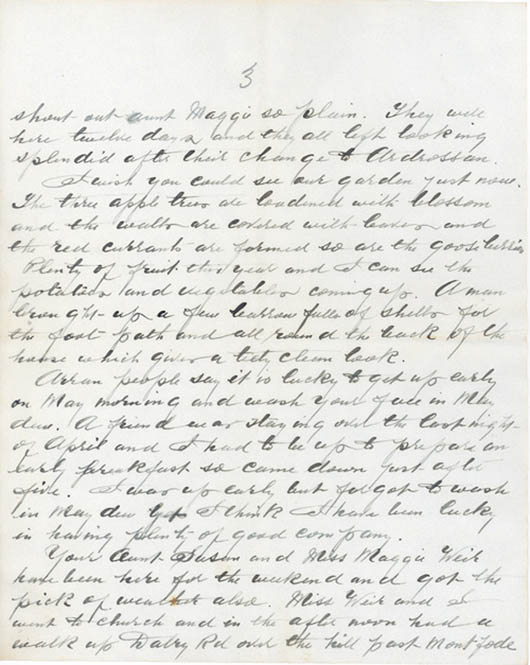 3
shout out aunt Maggie so plain. They were
here twelve days and they all left looking
splendid after their change to Ardrossan.
I wish you could see our garden just now.
The three apple trees are loadened with blossom
and the walls are covered with leaves and
the red currants are formed so are the gooseberries
Plenty of fruit this year and I can see the
potatoes and vegetables coming up. A man
brought up a few barrow fulls of shells for
the foot path and all round the back of the
house which gives a tidy clean look.
Arran people say it is lucky to get up early
on May morning and wash your face in May
dew. A friend was staying over the last night
of April and I had to be up to prepare an
early breakfast so came down just after
five. I was up early but forgot to wash
in May dew I think I have been lucky
in having plenty of good company.
Your Aunt Susan and Miss Maggie Weir
have been here for the weekend and got the
pick of weather also. Miss Weir and I
went to church and in the after noon had a
walk up Dalry Rd over the hill past Montfode